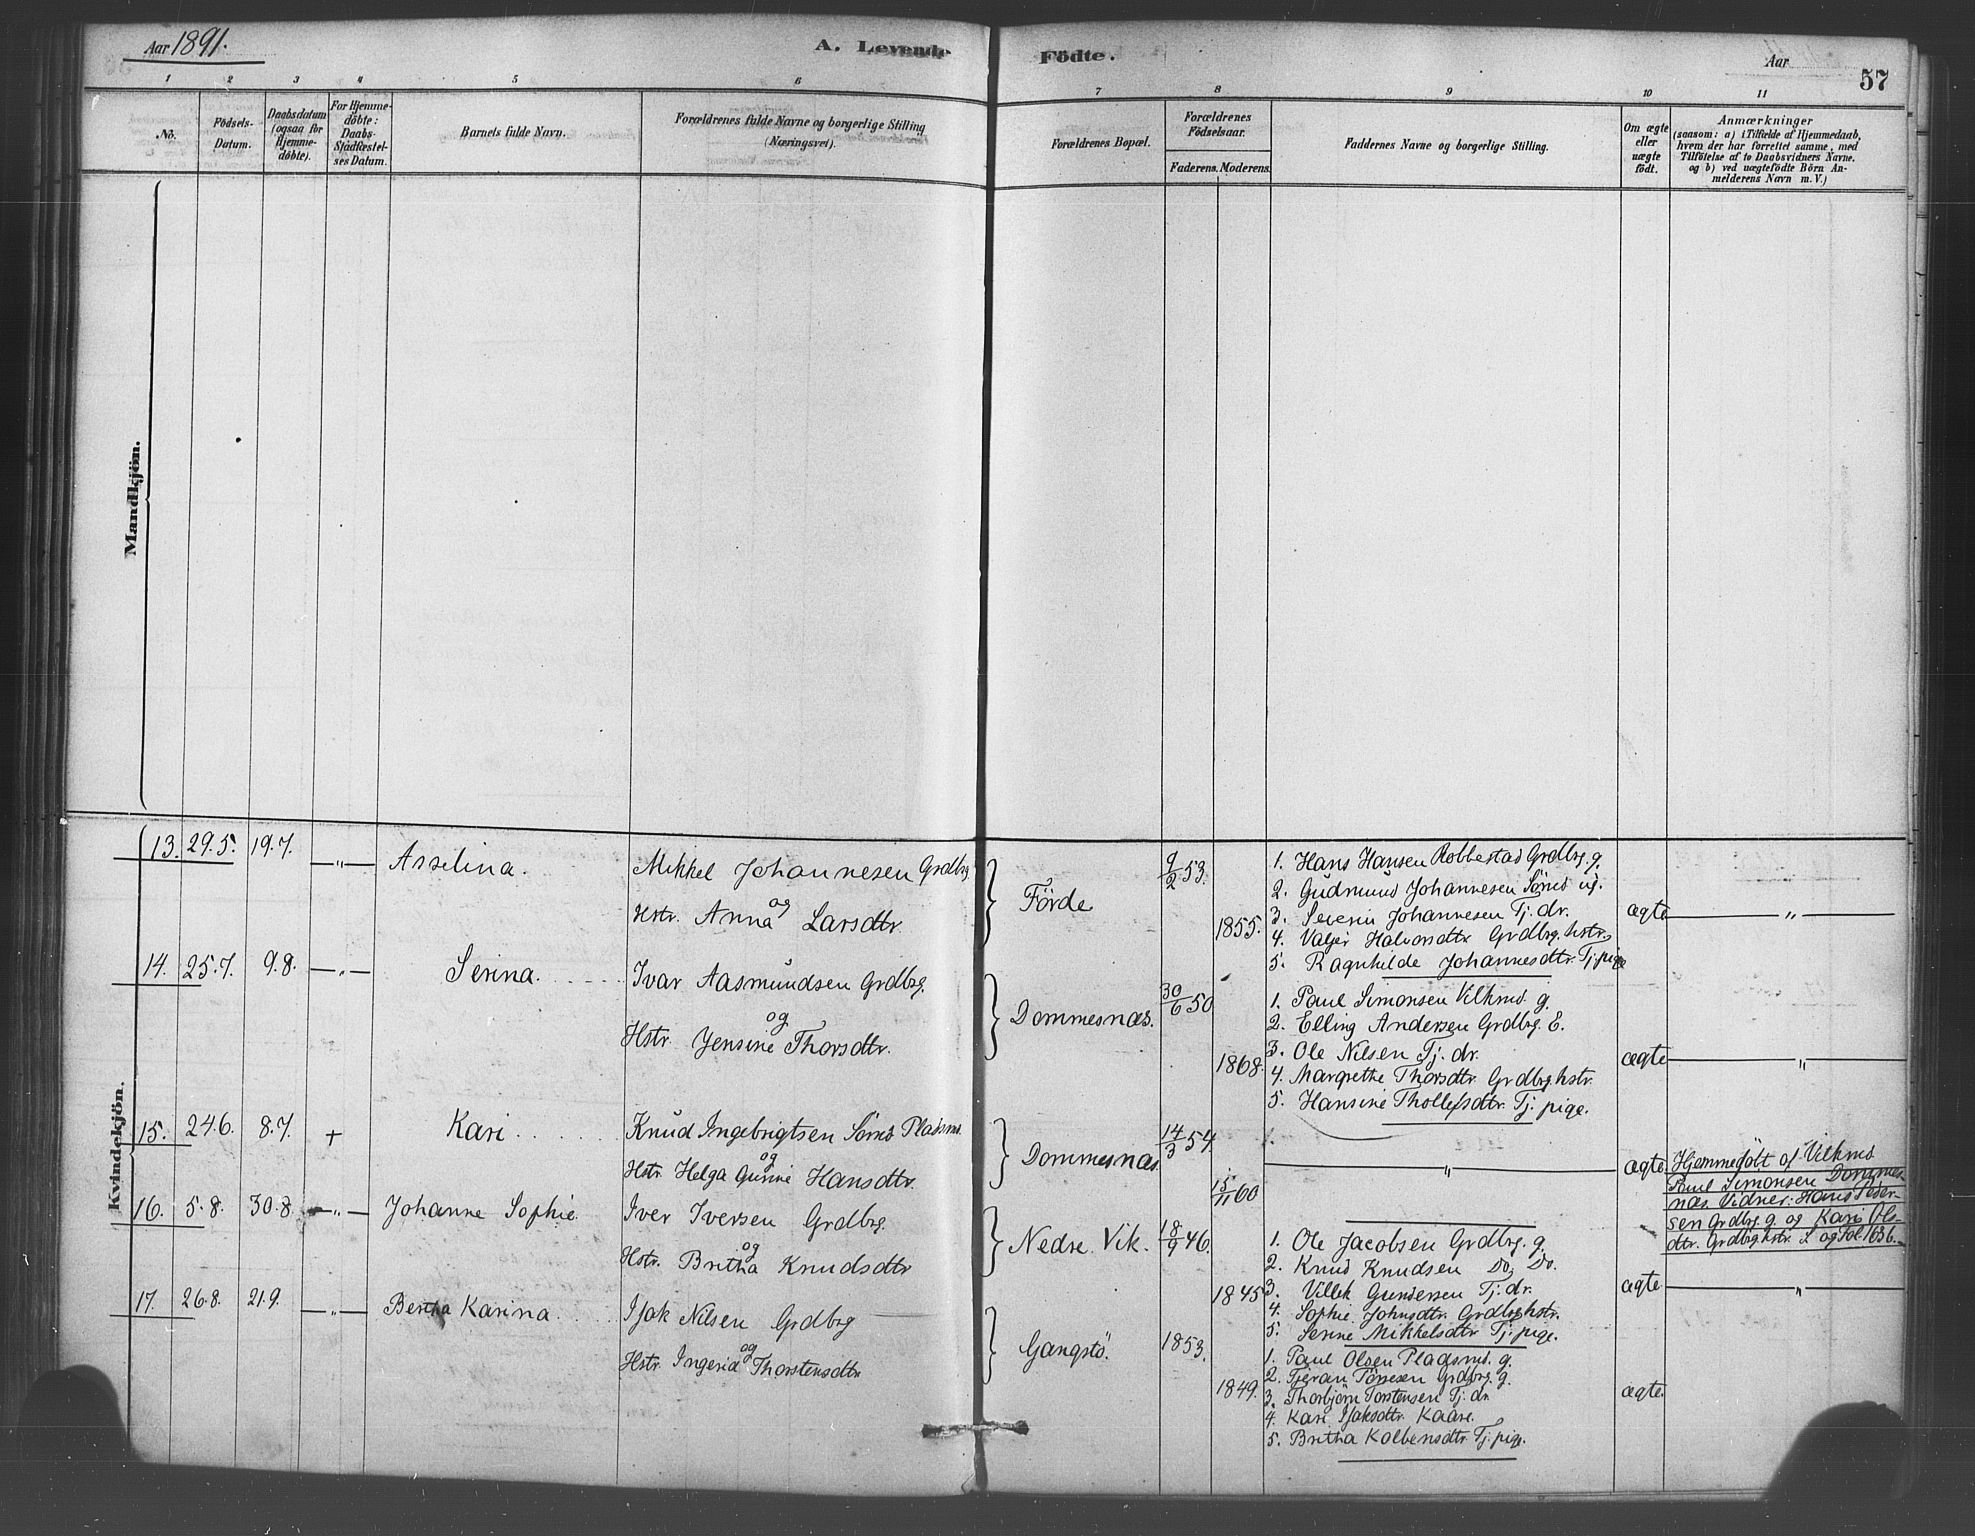 Aar 1891.
A. Levende Födte.
Aar
57
1 2 3 4 5 6 7 8 9 10 11
No.
Födsels-Datum.
Daabsdatum (ogsaa for Hjemme-döbte).
For Hjemme-döbte: Daabs-Stadfæstel-ses Datum.
Barnets fulde Navn.
Forældrenes fulde Navne og borgerlige Stilling (Næringsvei).
Forældrenes Bopæl.
Forældrenes Födselsaar.
Faderens. Moderens.
Faddernes Navne og borgerlige Stilling.
Om ægte eller uægte födt.
Anmærkninger
(saasom: a) i Tilfælde af Hjemmedaab,
hvem der har forrettet samme, med
Tilföielse af to Daabsvidners Navne.
og b) ved uægtefödte Börn An-
melderens Navn m. V.)
Mandkjön.
Kvindekjön.
13. 29.5. 19.7. —"— Asselina. Mikkel Johannesen Grdbrg.
og
Hstr. Anna Larsdtr.
Förde
9/2 53.
1855.
1. Hans Hansen Robbestad Grdbrg. g.
2. Gudmund Johannesen Sönes ug.
3. Severin Johannesen Tj. dr.
4. Valjer Halvorsdtr. Grdbrg. hstr.
5. Ragnhilde Johannesdtr. Tj. pige
ægte
"
14. 25.7. 9.8. —"— Serina. Ivar Aasmundsen Grdbrg.
og
Hstr. Jensine Thorsdtr.
Dommesnæs.
30/6 50
1868.
1. Paul Simonsen Vilkms. g.
2. Elling Andersen Grdbrg. E.
3. Ole Nilsen Tj. dr.
4. Margrethe Thorsdtr. Grdbrg. hstr.
5. Hansine Thollefsdtr. Tj. pige.
ægte
"
15. 24.6. 8.7. + Kari Knud Ingebrigtsen Pladsms.
og
Hstr. Helga Gurine Hansdtr.
Dommesnæs.
14/3 54.
15/11 60
"
ægte.
Hjemmedöbt af Vilkms
Paul Simonsen Dommes-
næs. Vidner: Hans Peder-
sen Grdbrg. g. og Kari Ols-
dtr. Grdbrg. hstr.
16. 5.8. 30.8. —"— Johanne Sophie. Iver Iversen Grdbrg.
og
Hstr. Britha Knudsdtr.
Nedre Vik.
18/9 46.
1845
1. Ole Jacobsen Grdbrg. g.
2. Knud Knudsen Do. Do.
3. Villek Gundersen Tj. dr.
4. Sophie Johnsdtr. Grdbrg hstr.
5. Serine Mikkelsdtr. Tj. pige.
ægte
"
17. 26.8. 21.9. —"— Bertha Karina. Isak Nilsen Grdbrg
og
Hstr. Ingerid Thorstensdtr.
Gangstö.
1853.
1849.
1. Paul Olsen Pladsms. g.
2. Tjeran Grdbrg. g.
3. Thorbjörn Torstensen Tj. dr.
4. Kari Isaksdtr. Kaare.
5. Britha Kolbensdtr. Tj. pige.
ægte.